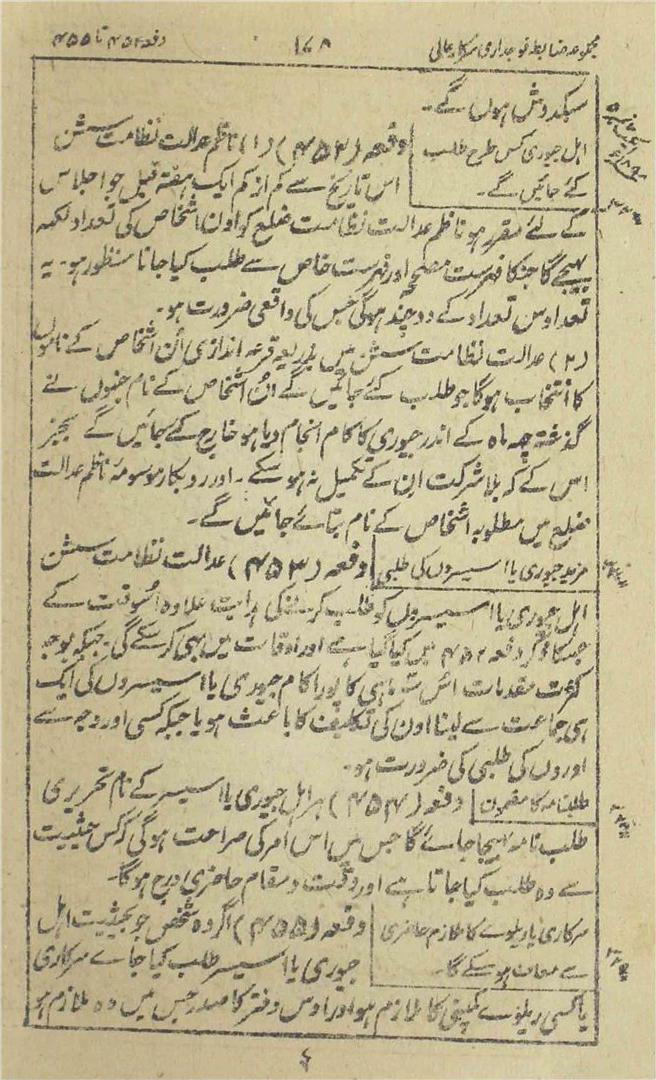 مجموعہ ضابطہ فوجداری سرکار عالی ۱۷۸ دفعہ ۴۵۲ تا ۴۵۵
سبکدوش ہوں گے۔
اہل جوری کس طرح طلب دفعہ (۴۵۲) (۱) ناظم عدالت نظامت سشن
کئے جائیں گے۔ اس تاریخ سے کم از کم ایک ہفتہ قبل جو اجلاس
کے لئے مقرر ہو ناظم عدالت نظامت ضلع کو اون اشخاص کی تعداد لکھہ
بہیجے گا جنکا فہرست مصححہ اور فہرست خاص سے طلب کیا جانا منظور ہو۔ یہ
تعداد اس تعداد کے دوچند ہوگی جس کی واقعی ضرورت ہو۔
(۲) عدالت نظامت سشن میں بذریعہ قرعہ اندازی اُن اشخاص کے ناموں
کا انتخاب ہوگا جو طلب کئے جائیں گے اُن اشخاص کے نام جنہوں نے
گذشتہ چہہ ماہ کے اندر جیوری کا کام انجام دیا ہو خارج کئے جائیں گے بجز
اس کے کہ بلا شرکت ان کے تکمیل نہ ہو سکے۔ اور روبکار موسومۂ ناظم عدالت
ضلع میں مطلوبہ اشخاص کے نام بتائے جائیں گے۔
مزید جیوری یا اسیسروں کی طلبی دفعہ (۴۵۳) عدالت نظامت سشن
اہل جیوری یا اسیسروں کو طلب کرنے کی ہدایت علاوہ اُسوقت کے
جسکا ذکر دفعہ ۴۵۲ میں کیا گیا ہے اور اوقات میں بھی کر سکے گی جبکہ بوجہ
کثرت مقدمات اس سہ ماہی کا پورا کام جیوری یا اسیسروں کی ایک
ہی جماعت سے لینا اون کی تکلیف کا باعث ہو یا جبکہ کسی اور وجہ سے
اوروں کی طلبی کی ضرورت ہو۔
طلبنامہ کا مضمون دفعہ (۴۵۴) ہر اہل جیوری یا اسیسر کے نام تحریری
طلب نامہ بھیجا جائے گا جس میں اس امر کی صراحت ہوگی کہ کس حیثیت
سے وہ طلب کیا جاتا ہے اور وقت و مقام حاضری درج ہوگا۔
سرکاری یا ریلوے کا ملازم حاضری دفعہ (۴۵۵) اگر وہ شخص جو بحیثیت اہل
سے معاف ہو سکے گا۔ جیوری یا اسیسر طلب کیا جاے سرکاری
یا کسی ریلوے کمپنی کا ملازم ہو اور اوس دفتر کا صدر جس میں وہ ملازم ہو